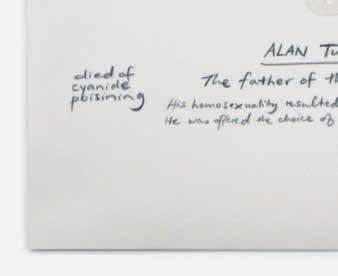 ALAN TU
died of
cyanide
poisining
The father of th
His homosexuality resulted
He was offered the choice of